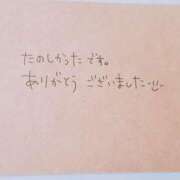 たのしかったです。
ありがとう ございました